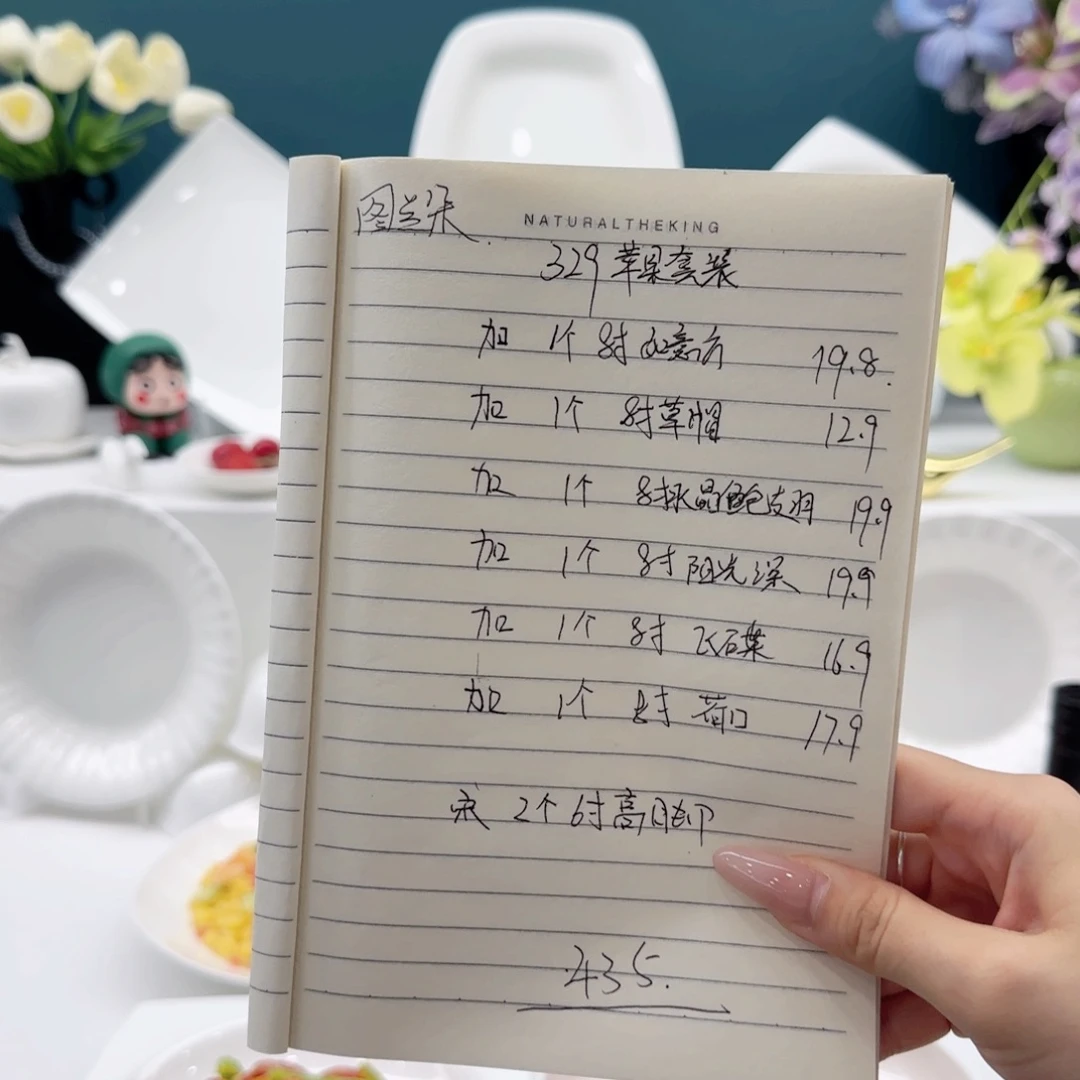 图兰朵.
NATURALTHEKING
329苹果套装
加 1个 8寸如意方 19.8.
加 1个 8寸草帽 12.9
加 1个 8寸水晶鲍皮羽 19.9
加 1个 8寸阳光深 19.9
加 1个 8寸飞碟 16.9
加 1个 8寸荷口 17.9
2个6寸高脚
435.